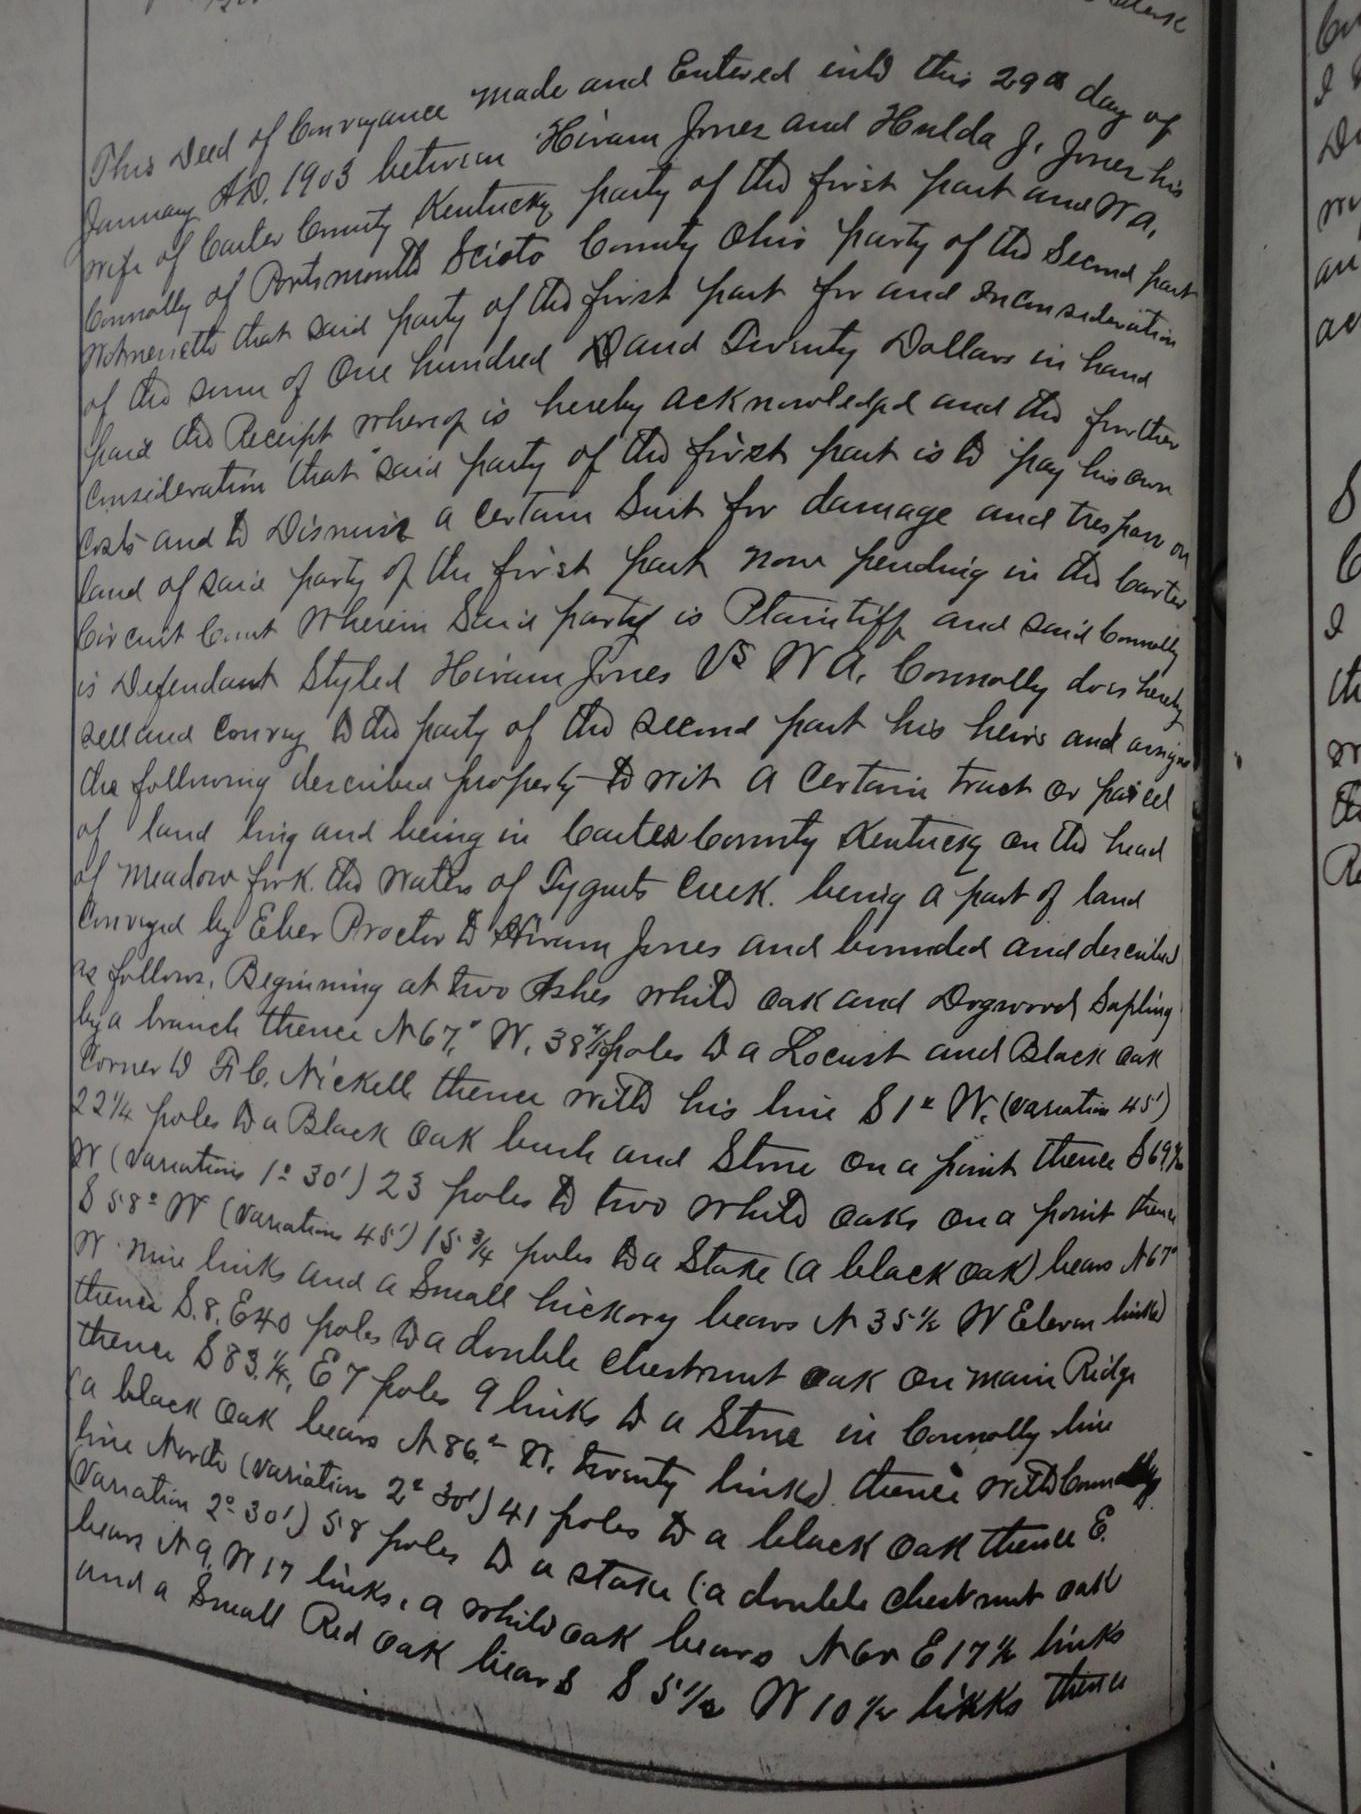 This Deed of Conveyance made and Entered into this 29th day of
January A.D. 1903 between Hiram Jones and Hulda J. Jones his
wife of Carter County Kentucky party of the first part and W A.
Connolly of Portsmouth Scioto County Ohio party of the Second part
Witnesseth that said party of the first part for and in consideration
of the sum of One hundred and Twenty Dollars in hand
paid the Receipt whereof is hereby acknowledged and the further
consideration that said party of the first part is to pay his own
costs and to Dismiss a certain Suit for damage and trespass on
land of said party of the first part now pending in the Carter
Circuit Court Wherein Said party is Plaintiff and said Connolly
is Defendant Styled Hiram Jones Vs W A. Connolly does hereby
sell and convey to the party of the second part his heirs and assigns
the following described property to wit a certain tract or parcel
of land ling and being in Carter County Kentucky on the head
of meadow fork. the waters of Tygarts Creek. being a part of land
Conveyed by Eber Proctor to Hiram Jones and bounded and described
as follows, Beginning at two Ashes white oak and Dogwood Sapling
by a branch thence N 67° W. 38 poles to a Locust and Black oak
Corner to Nickell thence with his line S 1° W. (variation 45')
22 1/4 poles to a Black oak bush and Stone on a point thence S 69
W (variations 1° 30') 23 poles to two white oaks on a point thence
S 58° W (variation 45') 15 3/4 poles to a Stake (a black oak) bears N 67°
W. nine links and a Small hickory bears N 35 1/2 W Eleven links)
thence S. 8. E 40 poles to a double chestnut oak on main Ridge
thence S 83. 1/4. E 7 poles 9 links to a Stone in Connolly line
(a black oak bears N 86° W. twenty links) thence with Connollys
line North (variation 2° 30') 41 poles to a black oak thence E.
(Variation 2° 30') 58 poles to a stake (a double chestnut oak
bears N 9. W 17 links, a white oak bears N E 17 1/2 links
and a Small Red oak bears S 5 1/2 W 10 1/2 links thence